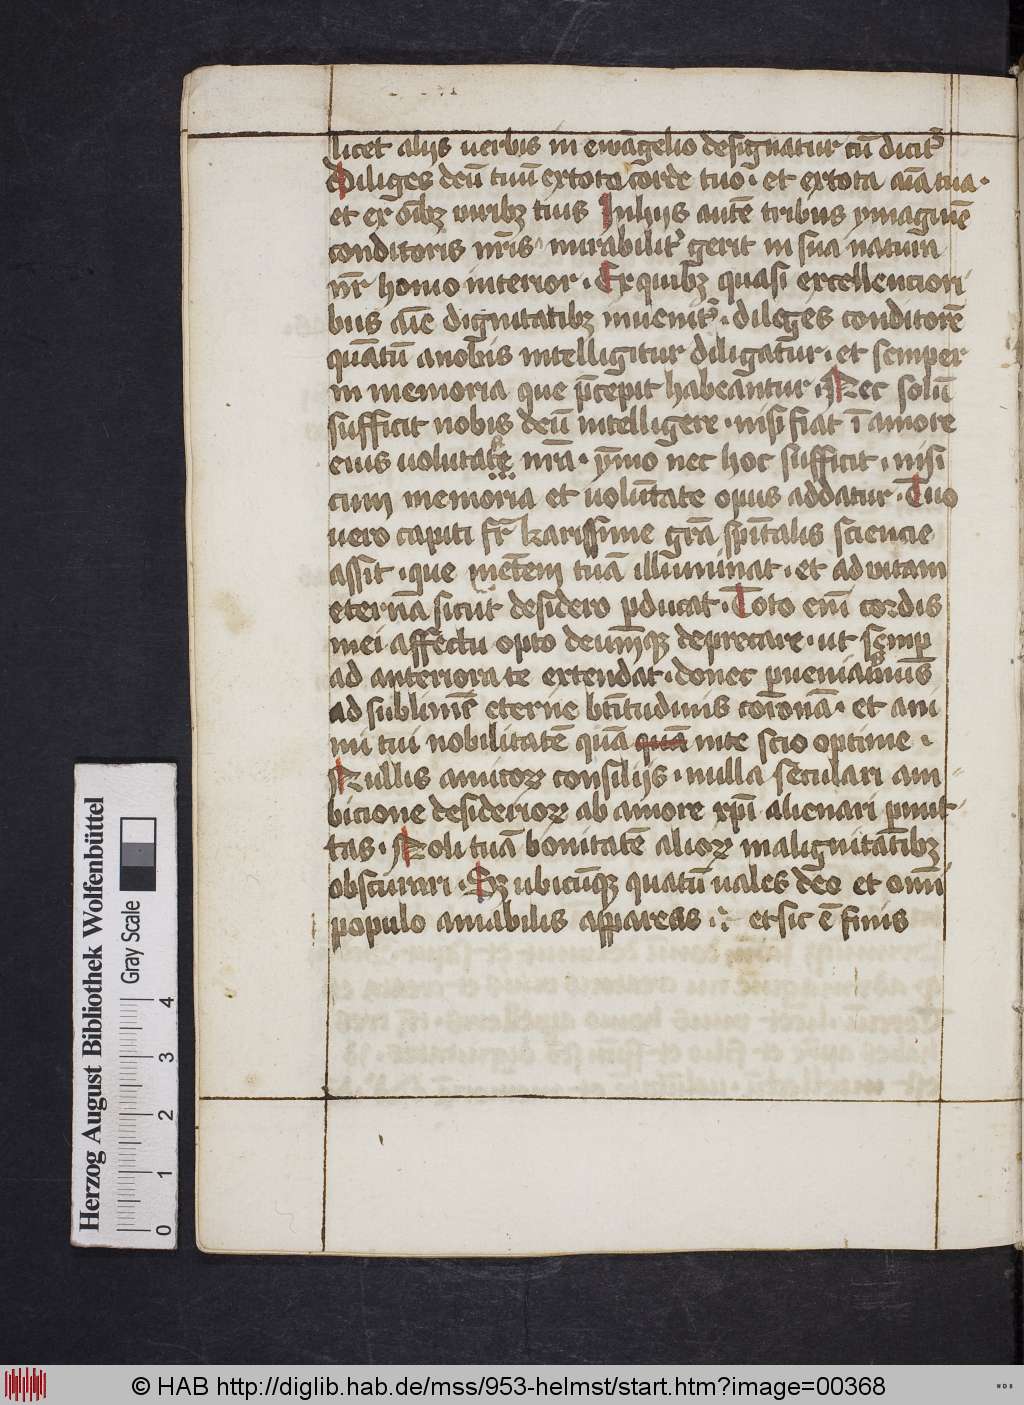 licet alijs uerbis in ewāgelio designatur cū dicit᷑
Diliges deū tuū ex tota corde tuo · et ex tota aīa tua ·
et ex oībꝫ uiribꝫ tuis In hijs autē tribus ymaginē
conditoris nr̄is mirabilit᷑ gerit in sua natura
nr̄ homo interior · Ex quibꝫ quasi excellenciori
bus aīe dignitatibꝫ inuenit᷑ · dileges conditorē
quātū a nobis intelligitur diligatur · et semper
in memoria que p̄cepit habeantur · Nec solū
sufficit nobis deū intelligere · nisi fiat ī amore
eius uolutate nrā · ymo nec hoc sufficit · nisi
cum memoria et uolūtate opus addatur · Tuo
uero capiti fr̄ karissime grā spītalis sciencie
assit · que mētem tuā illuminat · et ad uitam
eternā sicut desidero ꝑducat · Toto enī cordis
mei affectu opto deumqꝫ deprecare · ut semꝑ
ad anteriora te extendat · donec ꝑueniamus
ad sublimē eterne bt̄itudinis coronā · et ani
mi tui nobilitatē quā quā in te scio optime ·
Nullis amicoꝝ consilijs · nulla seculari am
bicione desiderioꝝ ab amore xp̄i alienari ꝑmit
tas · Noli tuā bonitatē alioꝝ malignitatibꝫ
obscurari · Sꝫ ubicūqꝫ quatū uales deo et omī
populo amabilis appareas · et sic ē finis
Herzog August Bibliothek Wolfenbüttel
Gray Scale
0 1 2 3 4
© HAB http://diglib.hab.de/mss/953-helmst/start.htm?image=00368